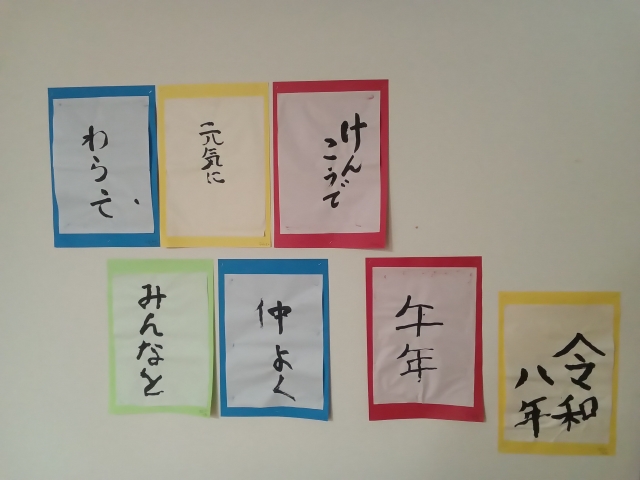 令和
八年
午年
けん
こうで
元気に
わらって、
仲よく
みんなと